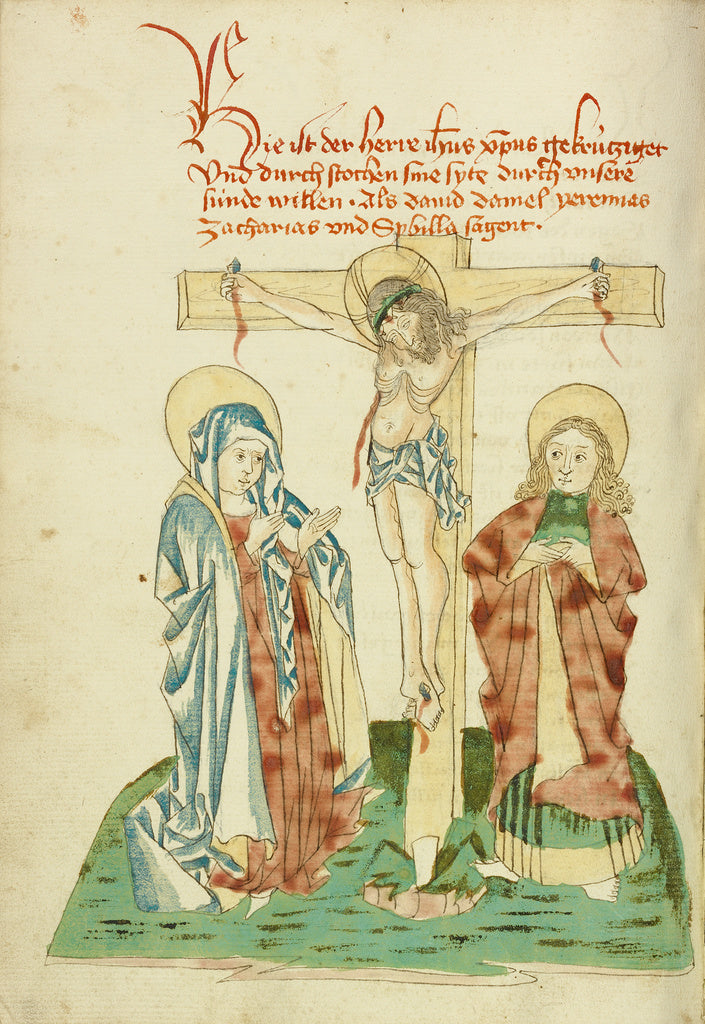 Hie ist der herre ihus xp̄us gekrúcziget
Vnd durch stochen sine syte durch vnsere
súnde willen · Als dauid daniel yeremias
Zacharias vnd Sybilla sagent ·